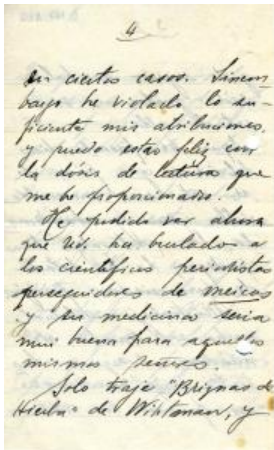 4
en ciertos casos. Sinem-
bargo he violado lo su-
ficiente mis atribuciones,
y puedo estar feliz con
la dósis de lectura que
me he proporcionado.
He podido ver ahora
que Ud. ha burlado a
los científicos periodistas
perseguidores de meicas
y su medicina sería
mui buena para aquellos
mismos señores.
Solo traje "Briznas de
Hierba" de Wihtman, y